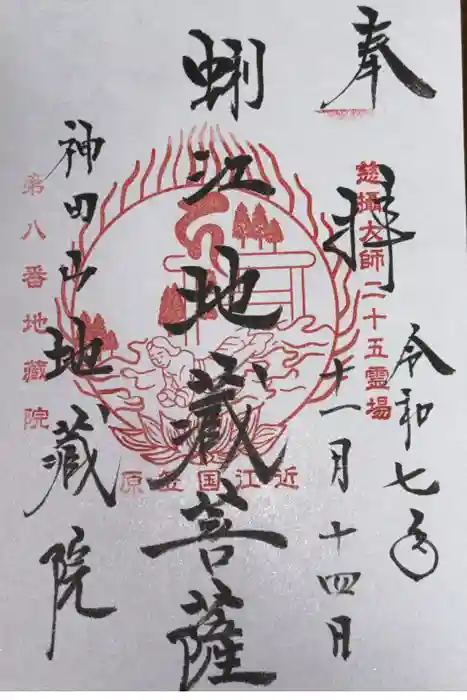 奉拝
慈攝大師二十五霊場
令和七年
十一月十四日
蜊江地蔵菩薩
近江国笠原
神田山地蔵院
第八番地蔵院